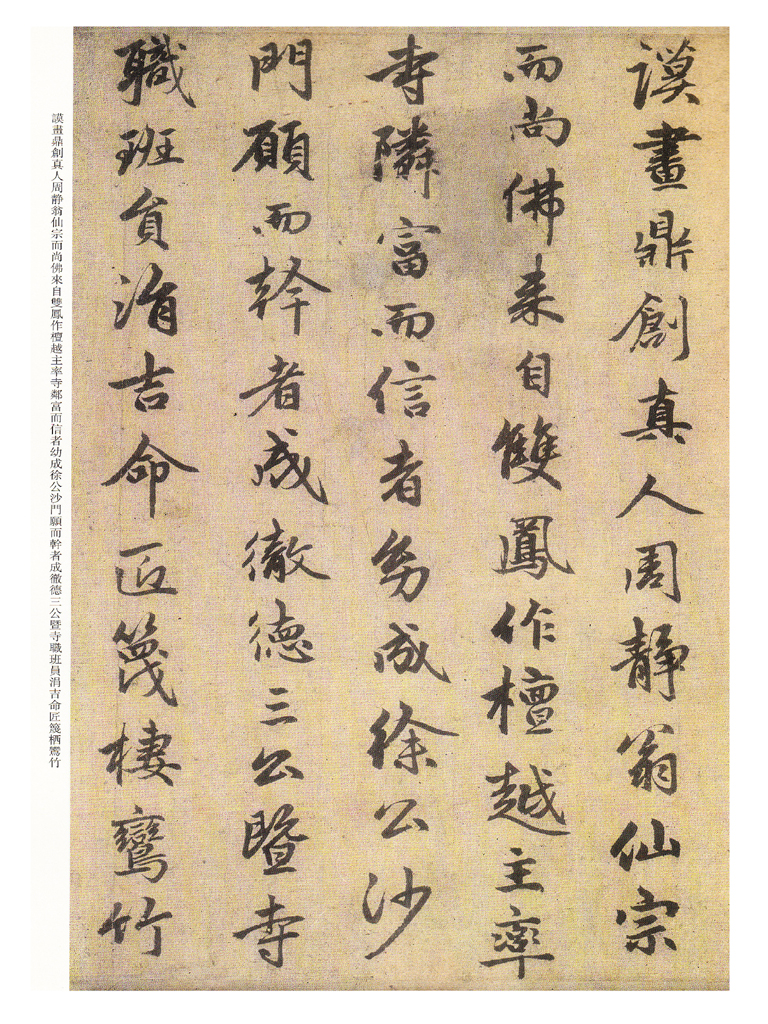 謨畫鼎創真人周静翁仙宗
而尚佛来自雙鳳作檀越主率
寺隣富而信者幼成徐公沙
門願而幹者成徹德三公暨寺
職班員涓吉命匠篾棲鸞竹
謨畫鼎創真人周静翁仙宗而尚佛來自雙鳳作檀越主率寺鄰富而信者幼成徐公沙門願而幹者成徹德三公暨寺職班員涓吉命匠篾栖鸞竹